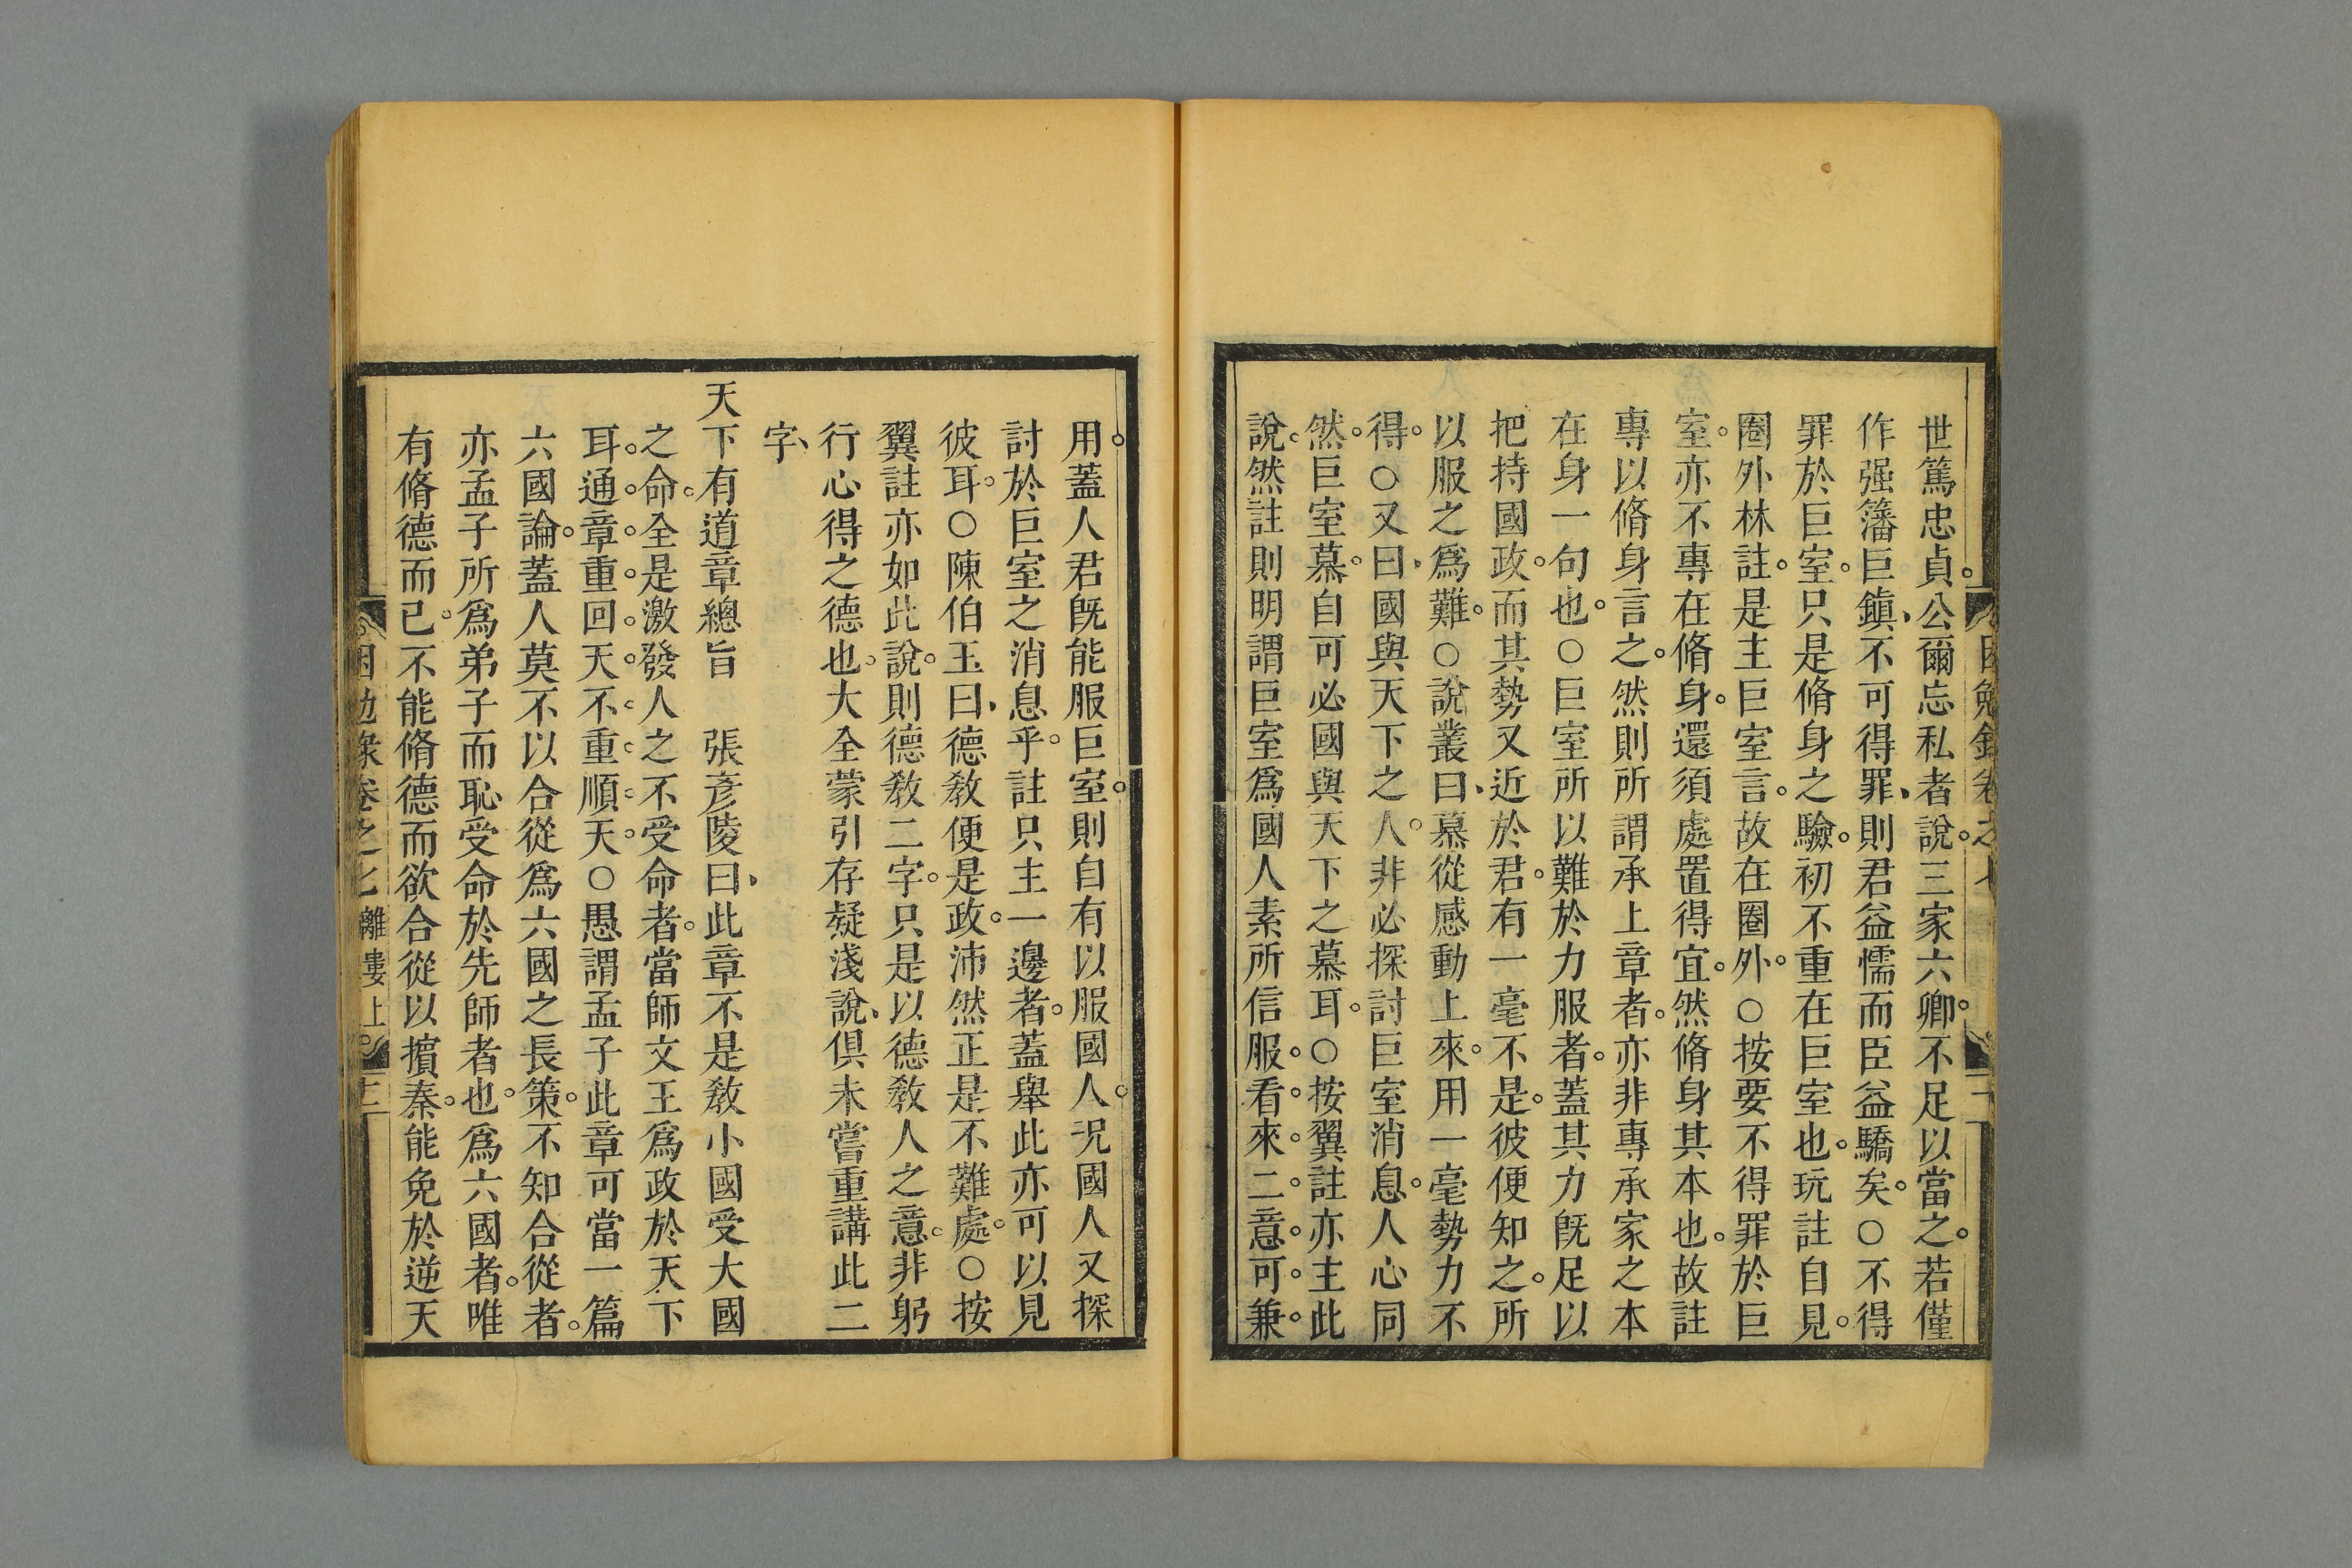 世篤忠貞。公爾忘私者說。三家六卿。不足以當之。若僅
作强籓巨鎮、不可得罪、則君益懦而臣益驕矣。○不得
罪於巨室。只是脩身之驗。初不重在巨室也。玩註自見。
圈外林註。是主巨室言。故在圈外。○按要不得罪於巨
室。亦不專在脩身。還須處置得宜。然脩身其本也。故註
專以脩身言之。然則所謂承上章者。亦非專承家之本
在身一句也。○巨室所以難於力服者。蓋其力旣足以
把持國政。而其勢又近於君。有一毫不是。彼便知之。所
以服之爲難。○說叢曰、慕從感動上來。用一毫勢力不
得。○又曰、國與天下之人。非必探討巨室消息。人心同
然。巨室慕。自可必國與天下之慕耳。○按翼註亦主此
說。然註則明謂巨室爲國人素所信服。看來二意可兼。
用。蓋人君旣能服巨室。則自有以服國人。况國人又探
討於巨室之消息乎。註只主一邊者。蓋舉此亦可以見
彼耳。○陳伯玉曰、德敎便是政。沛然正是不難處。○按
翼註亦如此說。則德敎二字。只是以德敎人之意。非躬
行心得之德也。大全蒙引存疑淺說、俱未嘗重講此二
字、
天下有道章總旨　張彥陵曰、此章不是敎小國受大國
之命。全是激發人之不受命者。當師文王爲政於天下
耳。通章重回天。不重順天。○愚謂孟子此章可當一篇
六國論。蓋人莫不以合從爲六國之長策。不知合從者。
亦孟子所爲弟子而恥受命於先師者也。爲六國者。唯
有脩德而已。不能脩德而欲合從以擯秦。能免於逆天
困勉錄卷之七 離婁上 十二